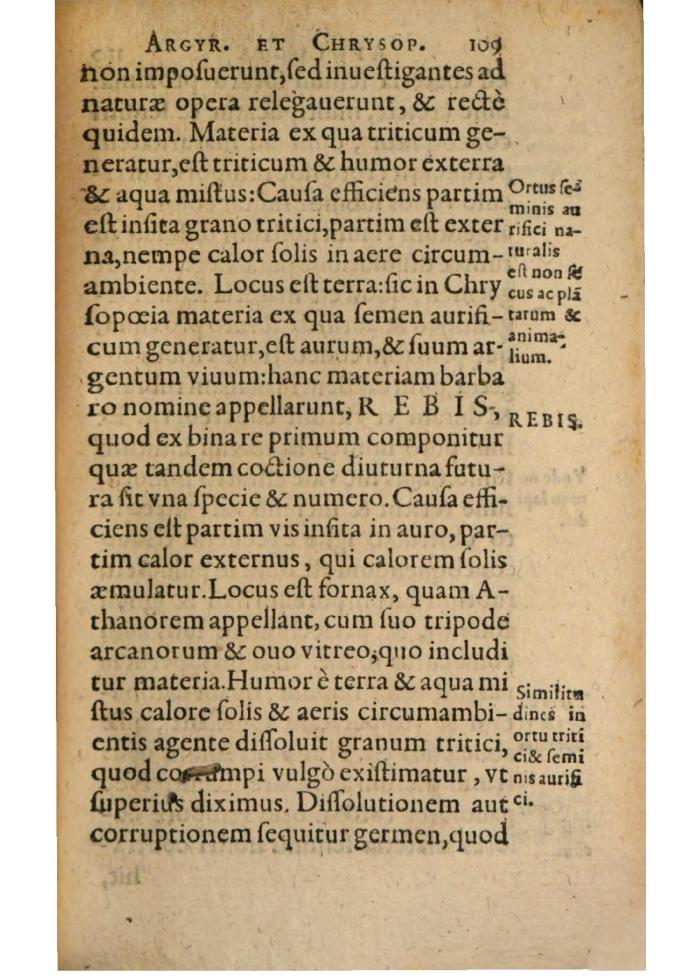 ARGYR. ET CHRYSOP. 109
non imposuerunt,sed inuestigantes ad
naturæ opera relegauerunt, & rectè
quidem. Materia ex qua triticum ge-
neratur,est triticum & humor exterra
& aqua mistus:Causa efficiens partim
est insita grano tritici,partim est exter
na,nempe calor solis in aere circum-
ambiente. Locus est terra:sic in Chry
sopœia materia ex qua semen aurifi-
cum generatur,est aurum,& suum ar-
gentum viuum:hanc materiam barba
ro nomine appellarunt, R E B I S,
quod ex bina re primum componitur
quæ tandem coctione diuturna futu-
ra sit vna specie & numero. Causa effi-
ciens est partim vis insita in auro, par-
tim calor externus, qui calorem solis
æmulatur. Locus est fornax, quam A-
thanorem appellant, cum suo tripode
arcanorum & ouo vitreo,quo includi
tur materia. Humor è terra & aqua mi
stus calore solis & aeris circumambi-
entis agente dissoluit granum tritici,
quod vulgò existimatur, vt
superius diximus. Dissolutionem aut
corruptionem sequitur germen,quod
Ortus se-
minis au
rifici na-
turalis
est non se
cus ac plã
tarum &
anima-
lium.
REBIS.
Similitu
dines in
ortu triti
ci & semi
nis aurifi
ci.